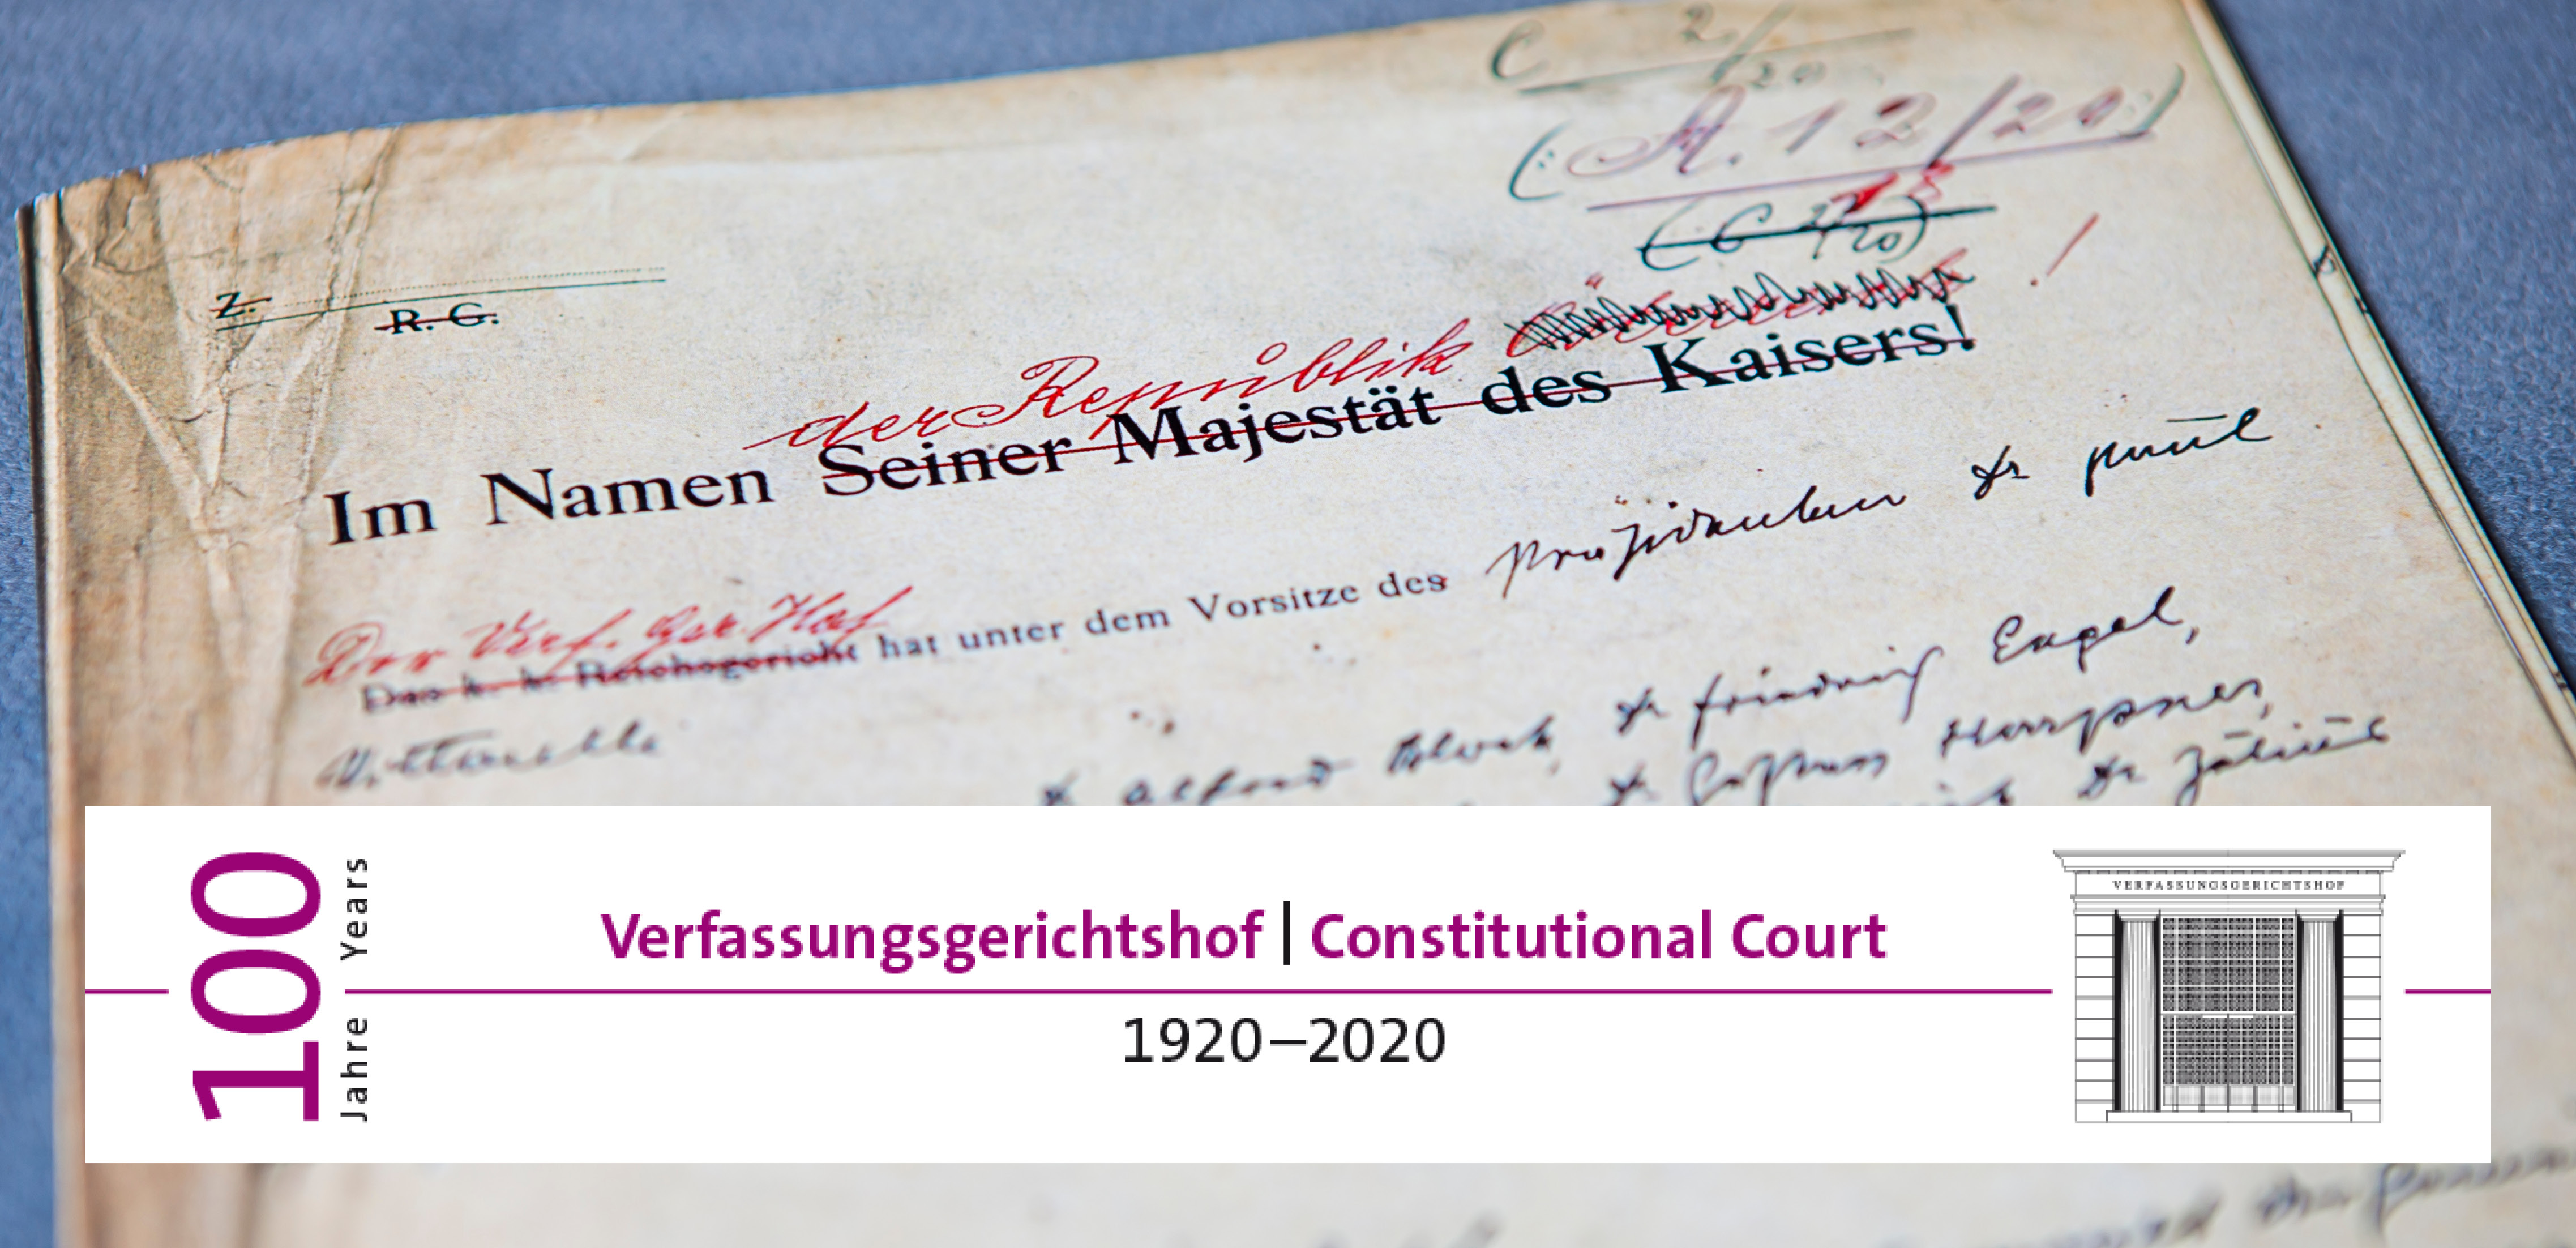 C 2/20
(: A. 12/20)
(C 2/20)
Z.
R. G.
der Republik !
Im Namen Seiner Majestät des Kaisers!
Der Verf. Ger. Hof
Das k. k. Reichsgericht hat unter dem Vorsitze des Präsidenten Dr
Dr Friedrich Engel,
Dr Alfred
Dr Gustav Harpner,
Dr Julius
100
Jahre Years
Verfassungsgerichtshof | Constitutional Court
1920–2020
VERFASSUNGSGERICHTSHOF